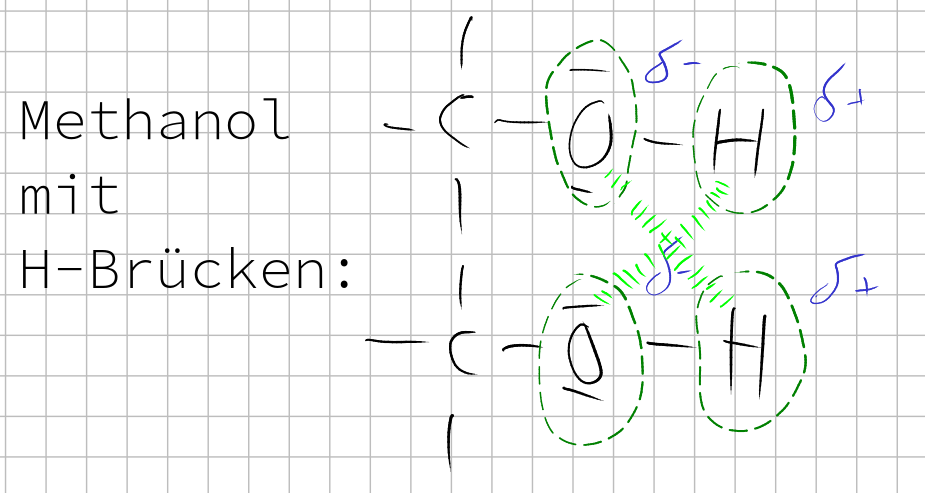 Methanol
mit
H-Brücken:
C O δ- H δ+
C O δ- H δ+